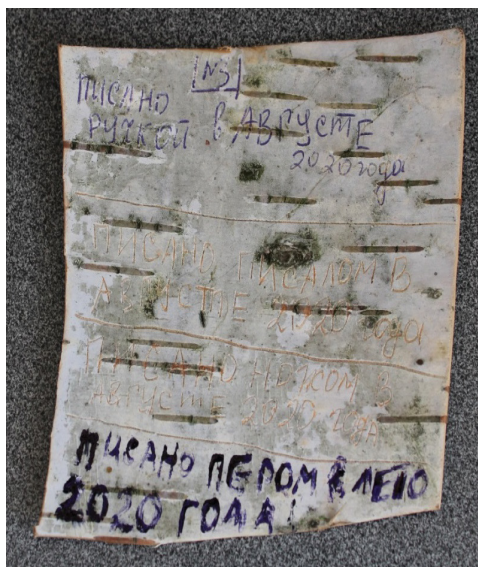 №3
ПИСАНО
РУЧКОЙ В АВГУСТЕ
2020 года
ПИСАНО ПИСАЛОМ В
АВГУСТЕ 2020 года
ПИСАНО НОЖОМ В
АВГУСТЕ 2020 ГОДА
ПИСАНО ПЕРОМ В ЛЕТО
2020 ГОДА!